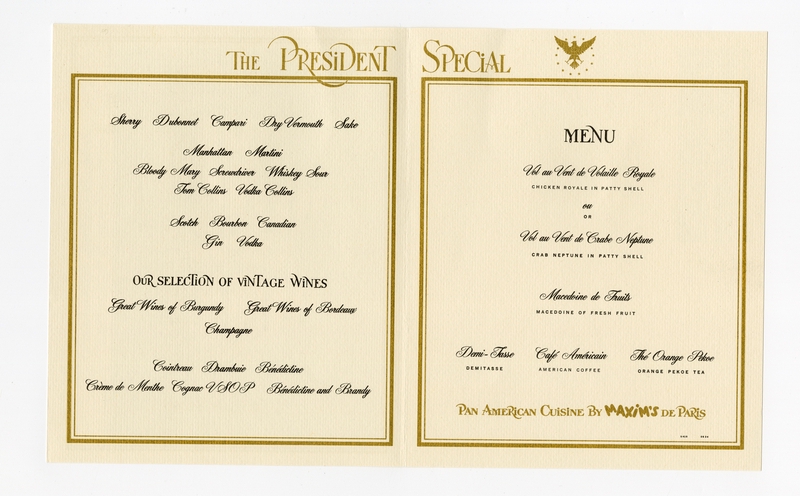 The President Special
Sherry Dubonnet Campari Dry Vermouth Sake
Manhattan Martini
Bloody Mary Screwdriver Whiskey Sour
Tom Collins Vodka Collins
Scotch Bourbon Canadian
Gin Vodka
Our Selection of Vintage Wines
Great Wines of Burgundy Great Wines of Bordeaux
Champagne
Cointreau Drambuie Bénédictine
Crème de Menthe Cognac VSOP Bénédictine and Brandy
MENU
Vol au Vent de Volaille Royale
CHICKEN ROYALE IN PATTY SHELL
ou
OR
Vol au Vent de Crabe Neptune
CRAB NEPTUNE IN PATTY SHELL
Macedoine de Fruits
MACEDOINE OF FRESH FRUIT
Demi-Tasse Café Américain Thé Orange Pekoe
DEMITASSE AMERICAN COFFEE ORANGE PEKOE TEA
Pan American Cuisine By MAXIM'S de Paris